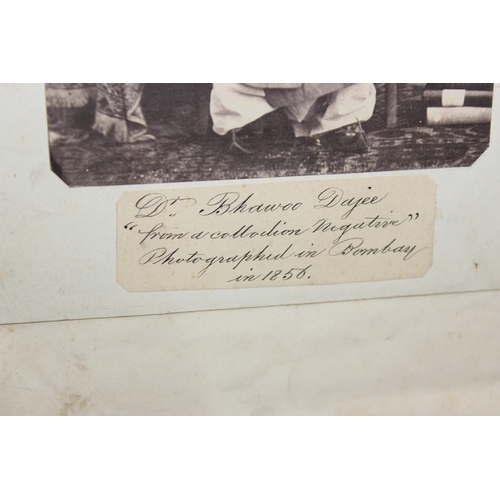 Dr. Bhawoo Dajee
"from a collodion Negative"
Photographed in Bombay
in 1856.